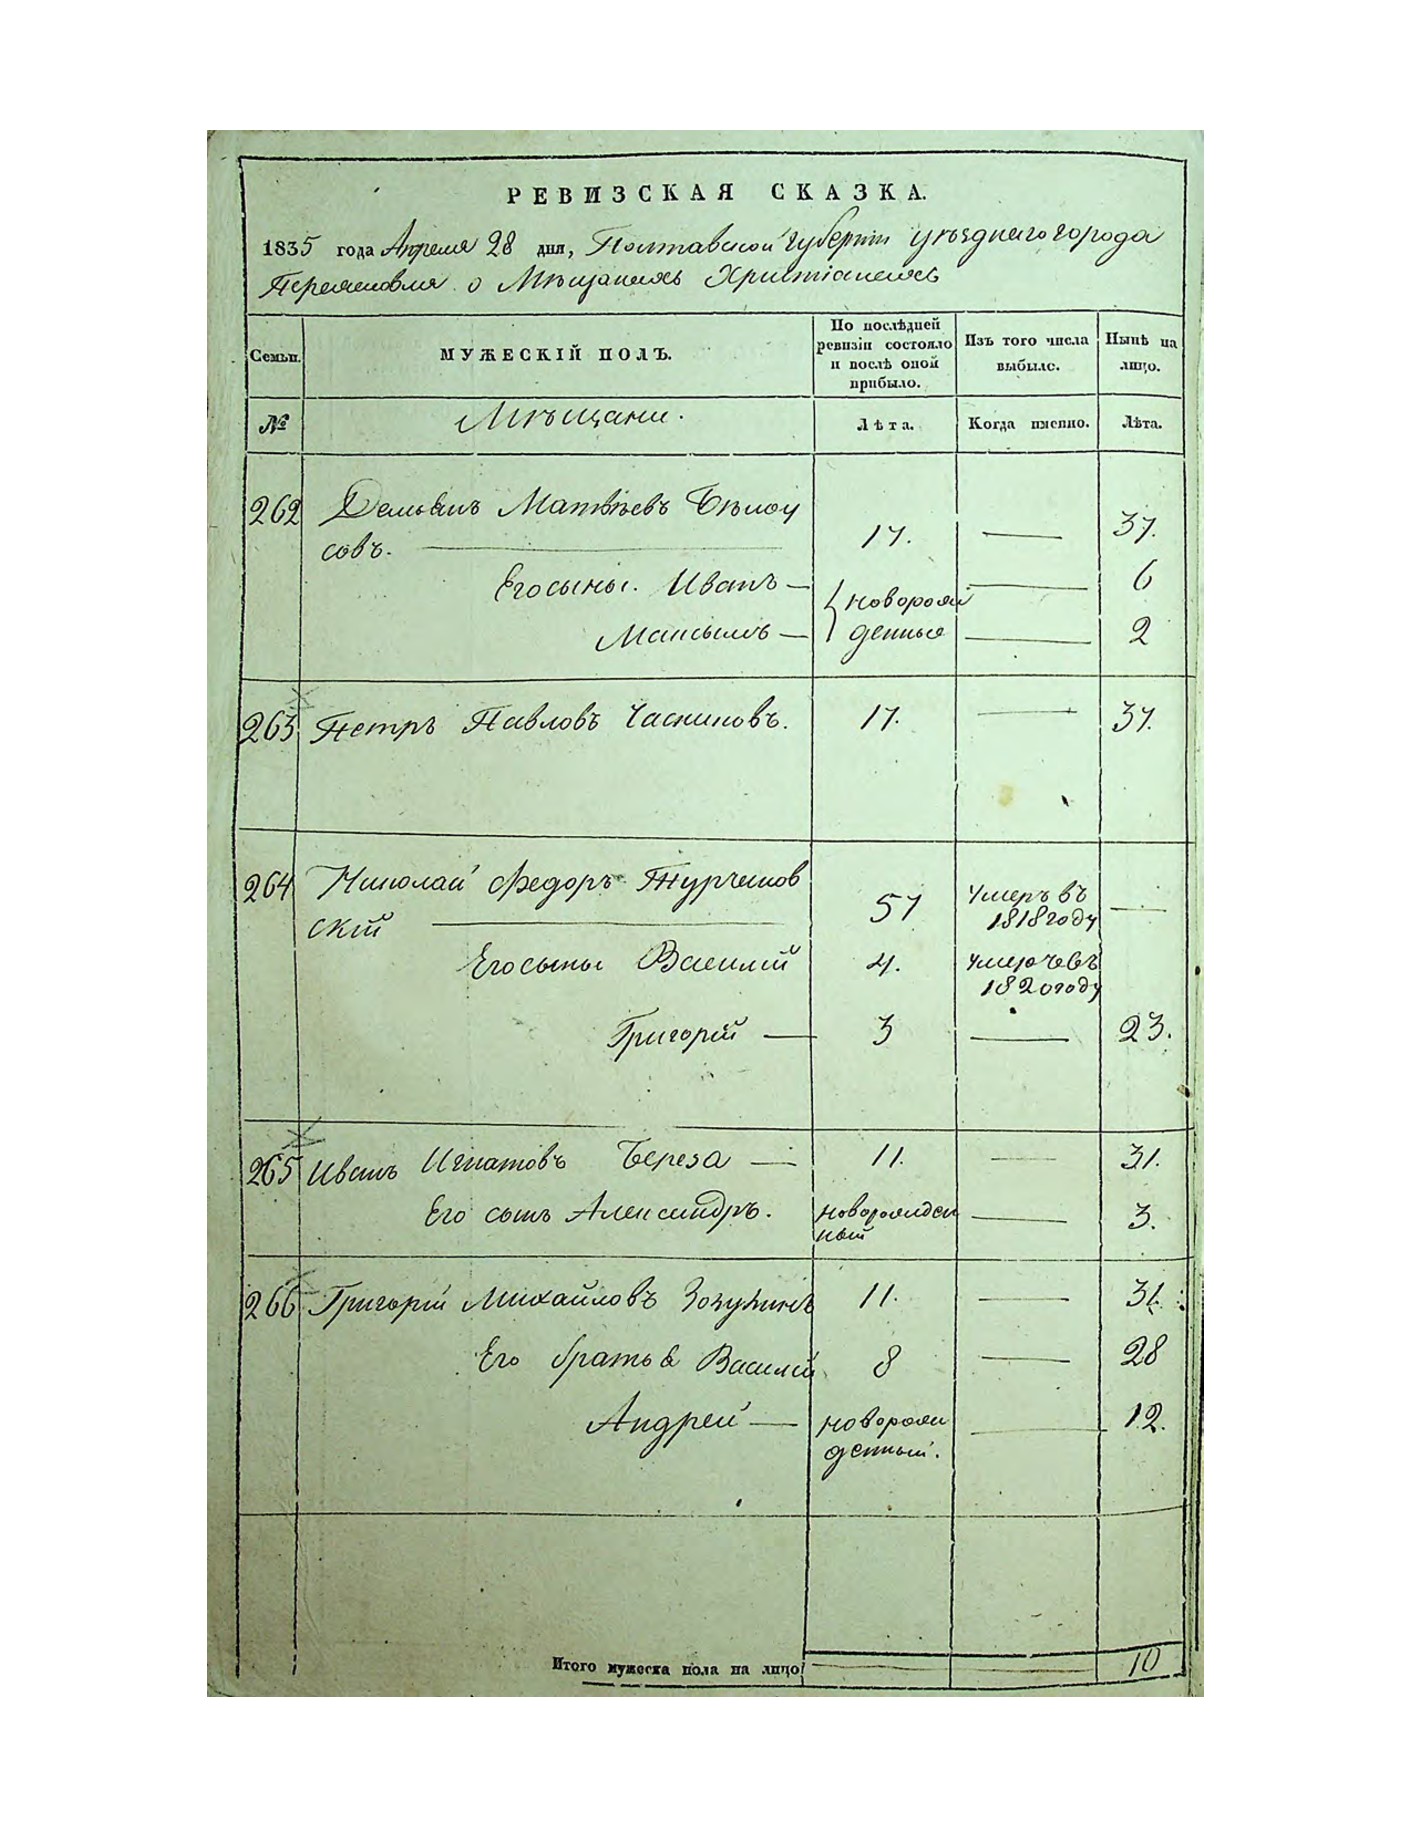 РЕВИЗСКАЯ СКАЗКА.
1835 года Апреля 28 дня, Полтавской губернии уезднаго города
Переяславля о Мѣщанахъ Христіанахъ
Семьи.
МУЖЕСКІЙ ПОЛЪ.
По послѣдней ревизіи состояло и послѣ оной прибыло.
Изъ того числа выбыло.
Нынѣ на лицо.
№
Мѣщане.
Лѣта.
Когда именно.
Лѣта.
262 Демьянъ Матвѣевъ Бѣлоу
совъ. 17. 37.
Его сыны. Иванъ новорож 6
Максимъ денные 2
263 Петръ Павловъ 17. 37.
264 Николай Федоръ 57 умеръ въ
скій 1818 году
Его сыны Василій 4. умеръ въ
1820 году
Григорій 3 23.
265 Иванъ Игнатовъ Береза 11. 31.
Его сынъ Александръ. новорожден 3.
ный
266 Григорій Михайловъ 11. 31.
Его братья Василій 8 28
Андрей новорож 12.
денный.
Итого мужеска пола на лицо 10